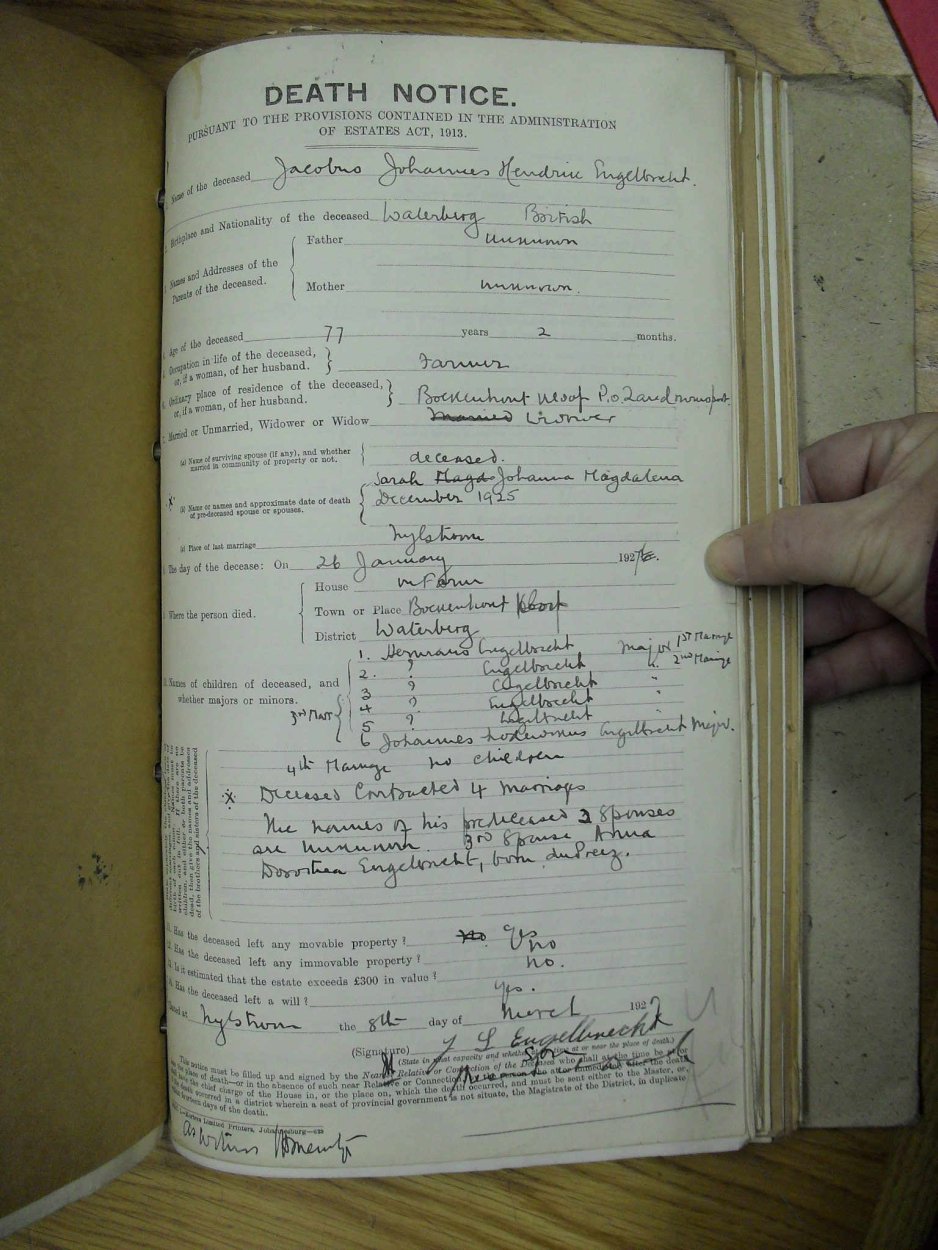 DEATH NOTICE.
PURSUANT TO THE PROVISIONS CONTAINED IN THE ADMINISTRATION
OF ESTATES ACT, 1913.
Name of the deceased Jacobus Johannes Hendric Engelbrecht.
Birthplace and Nationality of the deceased Waterberg British
Names and Addresses of the Parents of the deceased.
Father unknown
Mother unknown.
Age of the deceased 77 years 2 months.
Occupation in life of the deceased, or, if a woman, of her husband. Farmer
Ordinary place of residence of the deceased, or, if a woman, of her husband. Boekenhout P.o.
Married or Unmarried, Widower or Widow Married Widower
(a) Name of surviving spouse (if any), and whether married in community of property or not. deceased.
X (b) Name or names and approximate date of death of pre-deceased spouse or spouses. Sarah Magd Johanna Magdalena
December 1925
(c) Place of last marriage Nylstroom
The day of the decease: On 26 January 192
Where the person died.
House on Farm
Town or Place Boekenhout Kloof
District Waterberg
Names of children of deceased, and whether majors or minors.
1. Hermanus Engelbrecht Major 1st Marriage
2. ? Engelbrecht " 2nd Marriage
3rd Marr
3 ? Engelbrecht "
4 ? Engelbrecht "
5 ? Engelbrecht "
6 Johannes Engelbrecht Major.
4th Marriage no children
X Deceased Contracted 4 marriages
The names of his predeceased 2 Spouses
are unknown. 3rd Spouse Anna
Dorothea Engelbrecht, born du Preez.
Has the deceased left any movable property? No Yes
Has the deceased left any immovable property? no
Is it estimated that the estate exceeds £300 in value? no.
Has the deceased left a will? yes.
Dated at Nylstroom the 8th day of March 1927
(Signature) J L Engelbrecht
(State in what capacity and whether present at the time at or near the place of death.)
Son
This notice must be filled up and signed by the Nearest Relative or Connection of the Deceased who shall at the time be at or
near the place of death—or in the absence of such near Relative or Connection
the chief charge of the House in, or the place on, which the death occurred, and must be sent either to the Master, or,
if the death occurred in a district wherein a seat of provincial government is not situate, the Magistrate of the District, in duplicate
within fourteen days of the death.
Limited Printers, Johannesburg
As witness